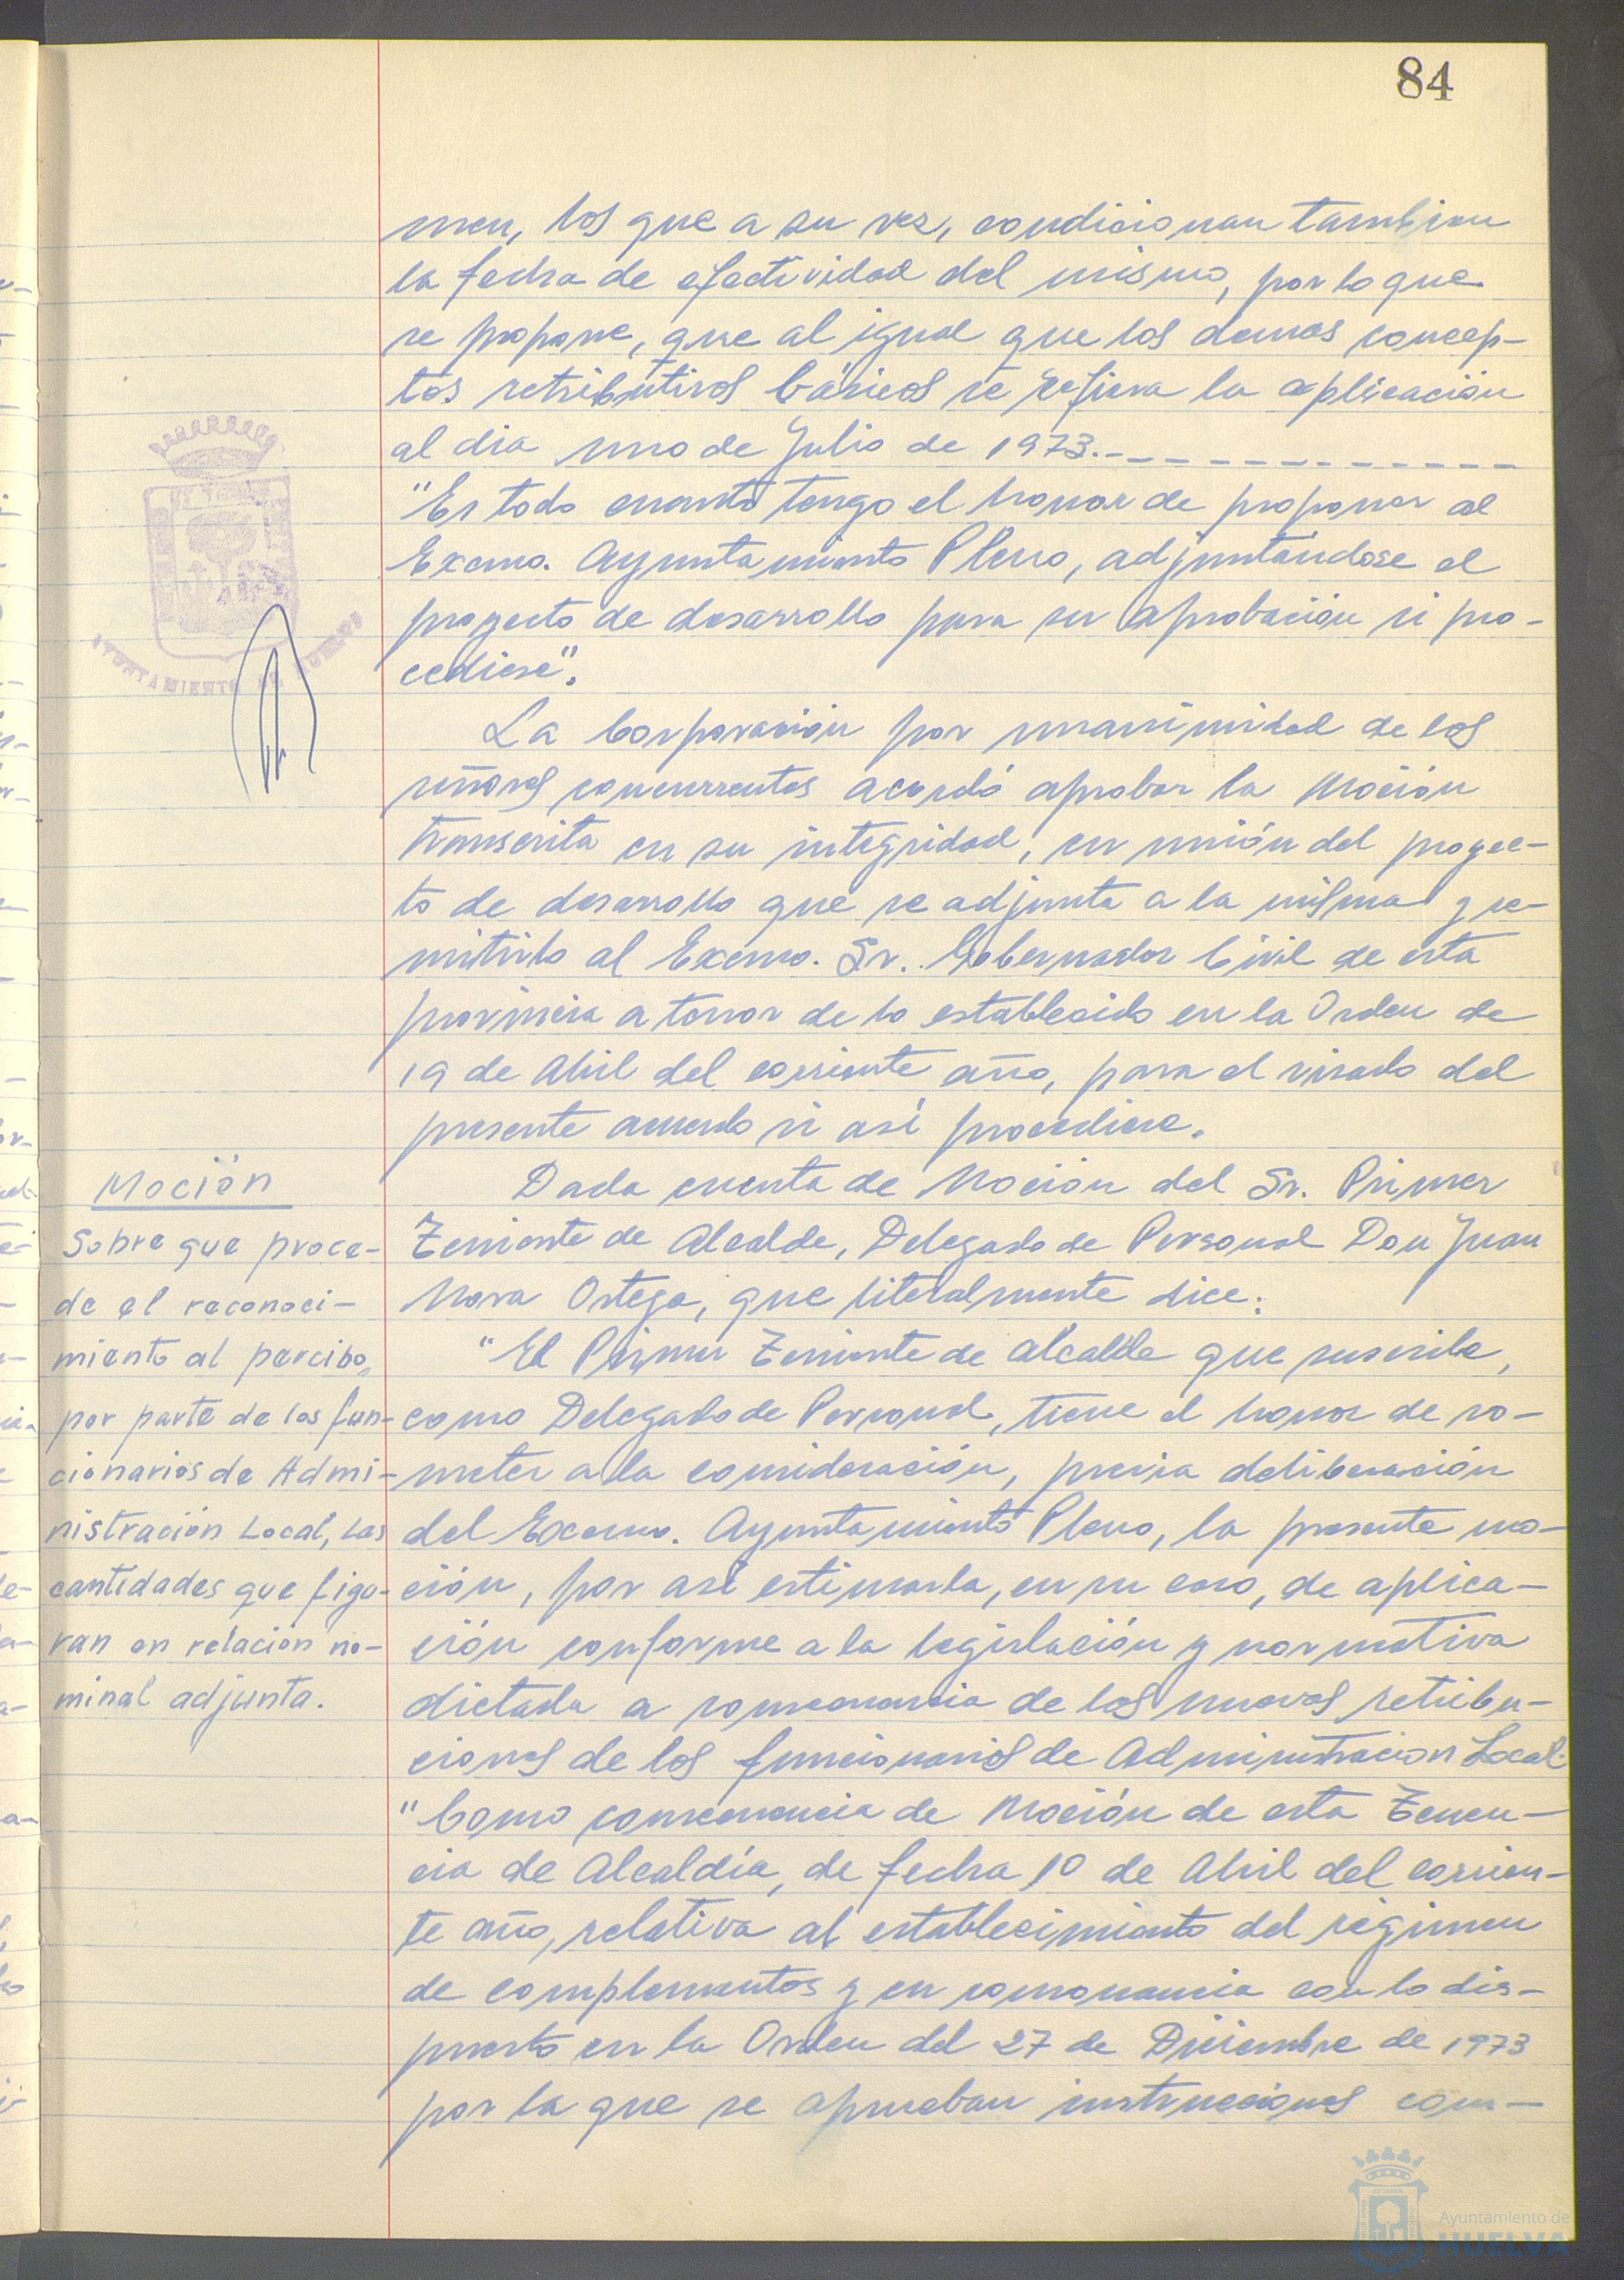 84
men, los que a su vez, condicionan tambien
la fecha de efectividad del mismo, por lo que
se propone, que al igual que los demas concep-
tos retributivos básicos se refiera la aplicación
al dia uno de Julio de 1973.-
"Es todo cuanto tengo el honor de proponer al
Excmo. Ayuntamiento Pleno, adjuntándose el
proyecto de desarrollo para su aprobación si pro-
cediese".
AYUNTAMIENTO DE HUELVA
La Corporación por unanimidad de los
señores concurrentes acordó aprobar la Moción
transcrita en su integridad, en unión del proyec-
to de desarrollo que se adjunta a la misma y re-
mitirlo al Excmo. Sr. Gobernador Civil de esta
provincia a tenor de lo establecido en la Orden de
19 de Abril del corriente año, para el visado del
presente acuerdo si así procediere.
Moción
Sobre que proce-
de el reconoci-
miento al percibo,
por parte de los fun-
cionarios de Admi-
nistración Local, las
cantidades que figu-
ran en relación no-
minal adjunta.
Dada cuenta de Moción del Sr. Primer
Teniente de Alcalde, Delegado de Personal Don Juan
Mora Ortega, que literalmente dice:
"El Primer Teniente de Alcalde que suscribe,
como Delegado de Personal, tiene el honor de so-
meter a la consideración, previa deliberación
del Excmo. Ayuntamiento Pleno, la presente mo-
ción, por así estimarla, en su caso, de aplica-
ción conforme a la legislación y normativa
dictada a consecuencia de las nuevas retribu-
ciones de los funcionarios de Administracion Local.
"Como consecuencia de Moción de esta Tenen-
cia de Alcaldía, de fecha 10 de Abril del corrien-
te año, relativa al establecimiento del régimen
de complementos y en consonancia con lo dis-
puesto en la Orden del 27 de Diciembre de 1973
por la que se aprueban instrucciones com-
Ayuntamiento de
HUELVA